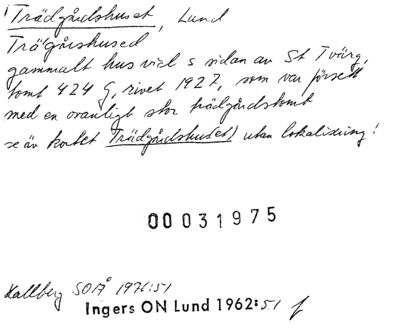 Trädgårdshuset, Lund
Trägårshused
gammalt hus vid s sidan av St Tvärg,
tomt 424 G, rivet 1927, som var försett
med en ovanligt stor trädgårdstomt
se äv kortet Trädgårdshuset) utan lokalisering!
00031975
Kallberg SOÅ 1976:51
Ingers ON Lund 1962:51